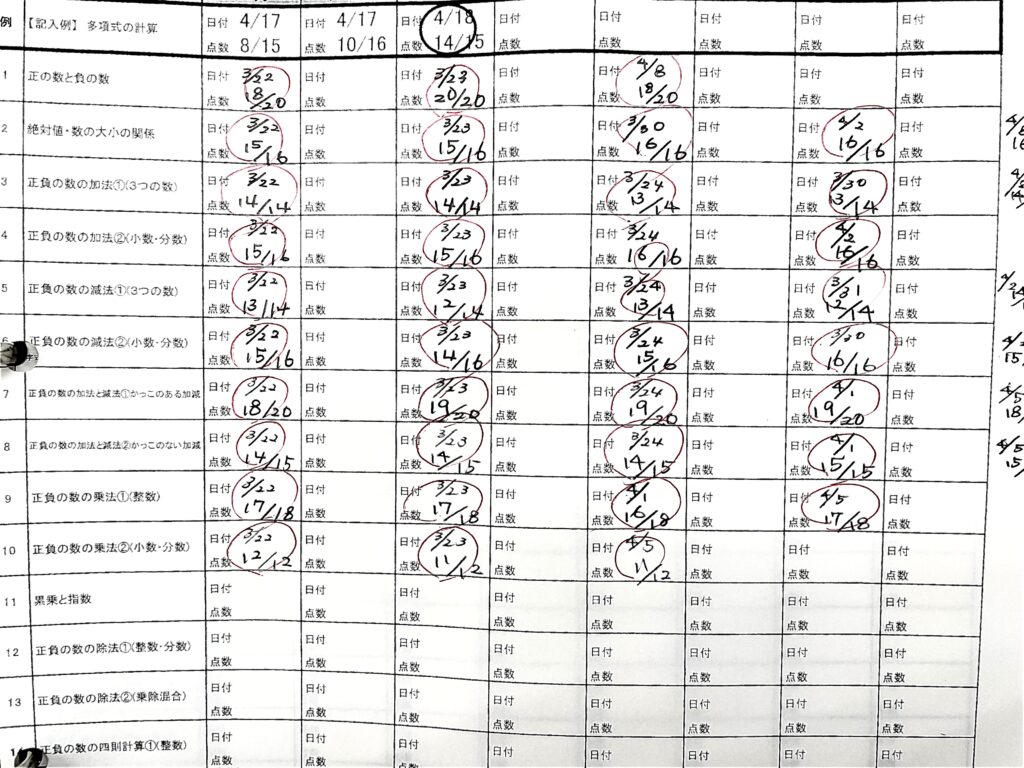 例 【記入例】 多項式の計算 日付 4/17 日付 4/17 日付 4/18 日付 日付 日付 日付 日付
点数 8/15 点数 10/16 点数 14/15 点数 点数 点数 点数 点数
1 正の数と負の数 日付 3/22 日付 日付 3/23 日付 日付 4/8 日付 日付 日付
点数 18/20 点数 点数 20/20 点数 点数 18/20 点数 点数 点数
2 絶対値・数の大小の関係 日付 3/22 日付 日付 3/23 日付 日付 3/30 日付 日付 4/2 日付
点数 15/16 点数 点数 15/16 点数 点数 16/16 点数 点数 16/16 点数
3 正負の数の加法①(3つの数) 日付 3/22 日付 日付 3/23 日付 日付 3/24 日付 日付 3/30 日付
点数 14/14 点数 点数 14/14 点数 点数 13/14 点数 点数 13/14 点数
4 正負の数の加法②(小数・分数) 日付 3/22 日付 日付 3/23 日付 日付 3/24 日付 日付 4/2 日付
点数 15/16 点数 点数 15/16 点数 点数 16/16 点数 点数 16/16 点数
5 正負の数の減法①(3つの数) 日付 3/22 日付 日付 3/23 日付 日付 3/24 日付 日付 3/31 日付
点数 13/14 点数 点数 12/14 点数 点数 13/14 点数 点数 12/14 点数
6 正負の数の減法②(小数・分数) 日付 3/22 日付 日付 3/23 日付 日付 3/24 日付 日付 3/30 日付
点数 15/16 点数 点数 14/16 点数 点数 15/16 点数 点数 16/16 点数
7 正負の数の加法と減法①かっこのある加減 日付 3/22 日付 日付 3/23 日付 日付 3/24 日付 日付 4/1 日付 4/5
点数 18/20 点数 点数 19/20 点数 点数 19/20 点数 点数 19/20 点数 18/
8 正負の数の加法と減法②かっこのない加減 日付 3/22 日付 日付 3/23 日付 日付 3/24 日付 日付 4/1 日付 4/5
点数 14/15 点数 点数 14/15 点数 点数 14/15 点数 点数 15/15 点数 15/
9 正負の数の乗法①(整数) 日付 3/22 日付 日付 3/23 日付 日付 4/1 日付 日付 4/5 日付
点数 17/18 点数 点数 17/18 点数 点数 16/18 点数 点数 17/18 点数
10 正負の数の乗法②(小数・分数) 日付 3/22 日付 日付 3/23 日付 日付 4/5 日付 日付 日付
点数 12/12 点数 点数 11/12 点数 点数 11/12 点数 点数 点数
11 累乗と指数 日付 日付 日付 日付 日付 日付 日付 日付
点数 点数 点数 点数 点数 点数 点数 点数
12 正負の数の除法①(整数・分数) 日付 日付 日付 日付 日付 日付 日付 日付
点数 点数 点数 点数 点数 点数 点数 点数
13 正負の数の除法②(乗除混合) 日付 日付 日付 日付 日付 日付 日付 日付
点数 点数 点数 点数 点数 点数 点数 点数
正負の数の四則計算①(整数) 日付 日付 日付 日付 日付 日付 日付 日付
点数 点数 点数 点数 点数 点数 点数 点数